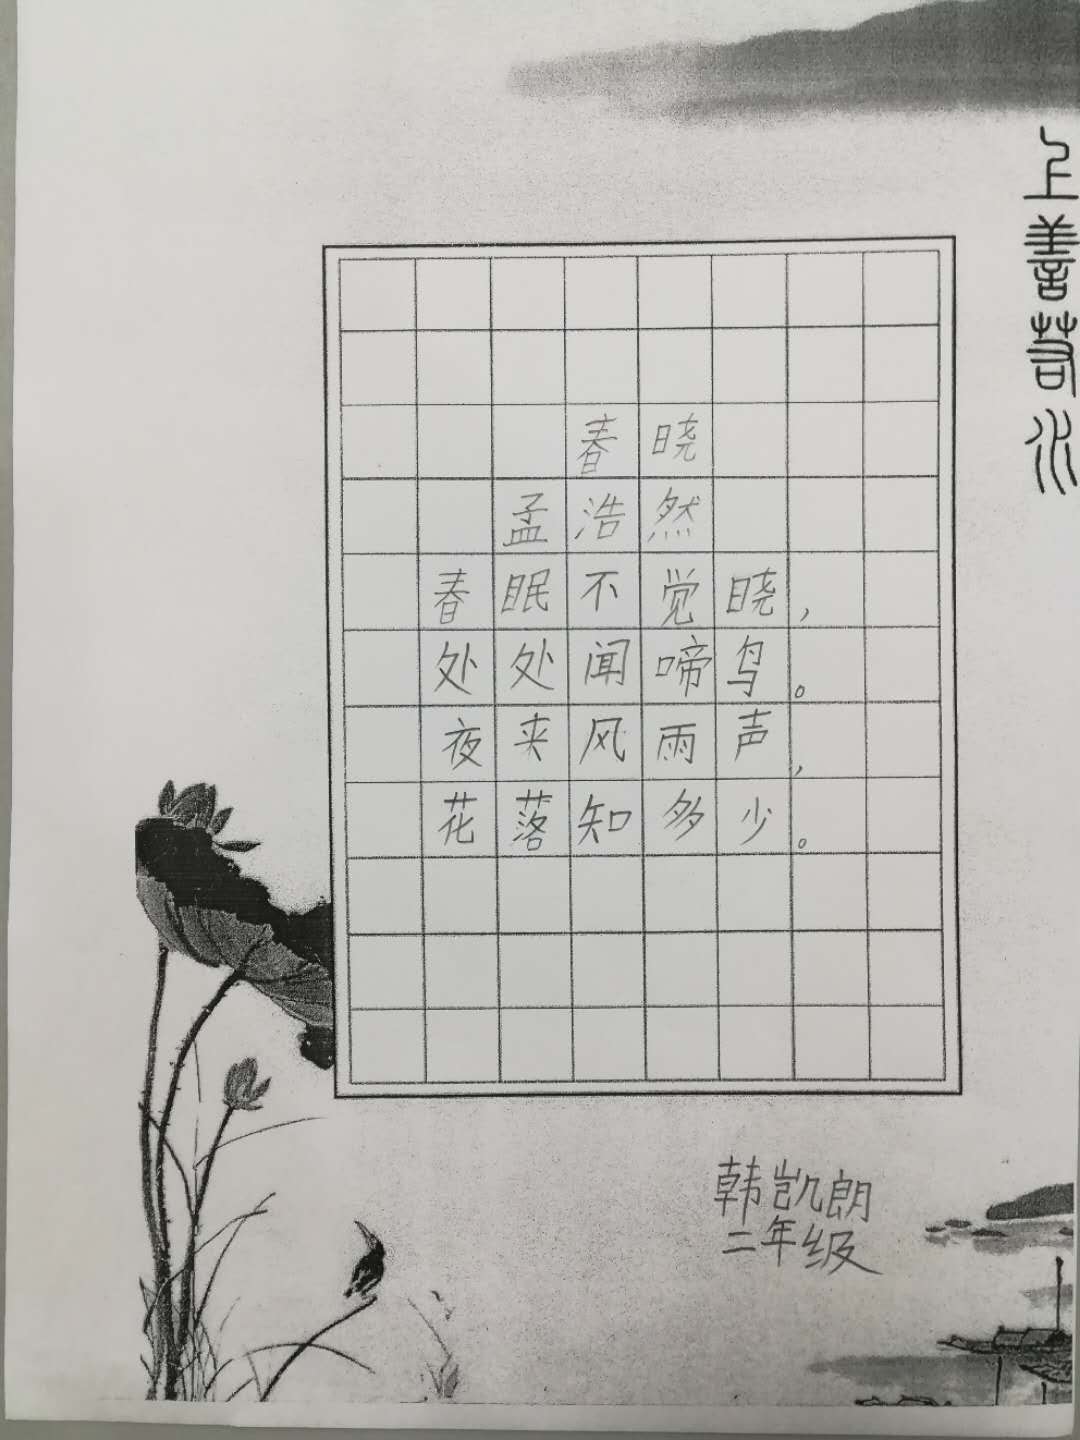 上善若水
春晓
孟浩然
春眠不觉晓，
处处闻啼鸟。
夜来风雨声，
花落知多少。
韩凯朗
二年级